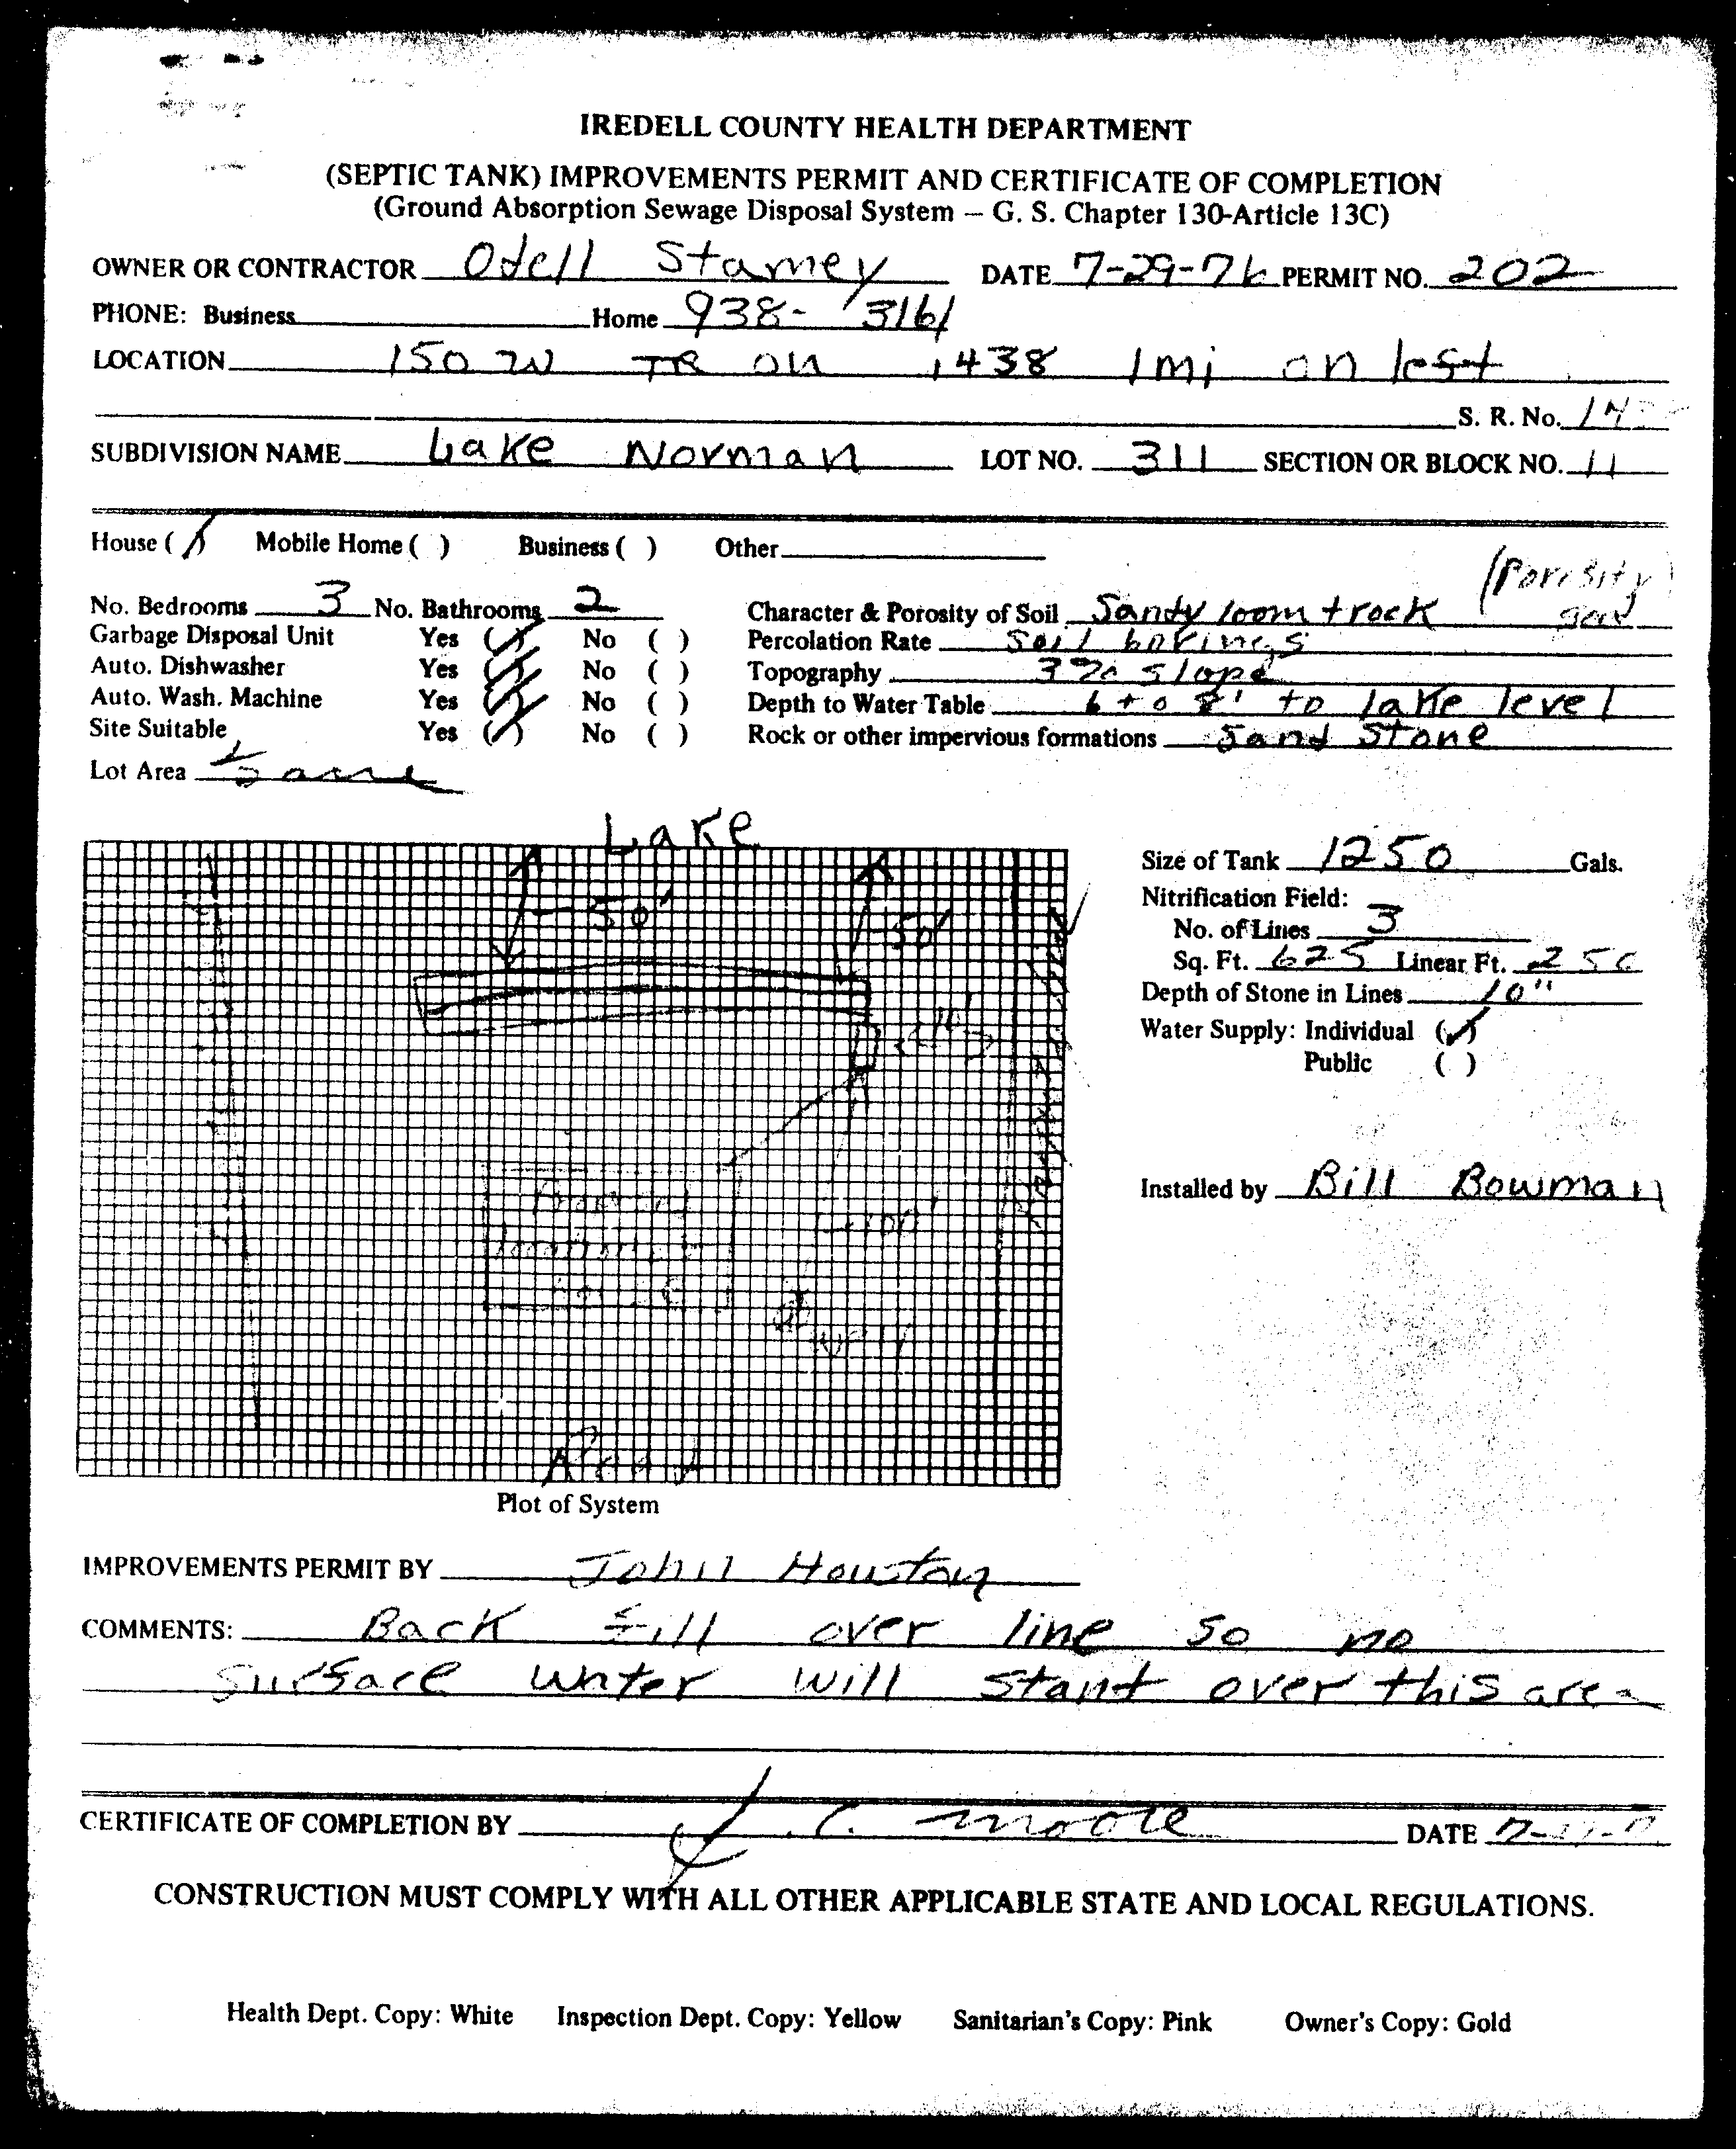 IREDELL COUNTY HEALTH DEPARTMENT
(SEPTIC TANK) IMPROVEMENTS PERMIT AND CERTIFICATE OF COMPLETION
(Ground Absorption Sewage Disposal System – G. S. Chapter 130-Article 13C)
OWNER OR CONTRACTOR Odell Stamey DATE 7-29-76 PERMIT NO. 202
PHONE: Business Home 938-3161
LOCATION 150 W TR on 1438 1 mi on left
S. R. No.
SUBDIVISION NAME Lake Norman LOT NO. 311 SECTION OR BLOCK NO. 11
House (✓) Mobile Home ( ) Business ( ) Other
(Porisity
No. Bedrooms 3 No. Bathrooms 2 Character & Porosity of Soil Sandy loom + rock
Garbage Disposal Unit Yes (✓) No ( ) Percolation Rate Soil borings
Auto. Dishwasher Yes (✓) No ( ) Topography 3% slope
Auto. Wash. Machine Yes (✓) No ( ) Depth to Water Table 6 to 8' to lake level
Site Suitable Yes (✓) No ( ) Rock or other impervious formations Sand Stone
Lot Area ½ acre
Lake
50'
50'
100'
Well
Road
Plot of System
Size of Tank 1250 Gals.
Nitrification Field:
No. of Lines 3
Sq. Ft. 625 Linear Ft. 250
Depth of Stone in Lines 10"
Water Supply: Individual (✓)
Public ( )
Installed by Bill Bowman
IMPROVEMENTS PERMIT BY John Houston
COMMENTS: Back fill over line so no
surface water will stand over this area
CERTIFICATE OF COMPLETION BY J. C. Moore DATE
CONSTRUCTION MUST COMPLY WITH ALL OTHER APPLICABLE STATE AND LOCAL REGULATIONS.
Health Dept. Copy: White Inspection Dept. Copy: Yellow Sanitarian's Copy: Pink Owner's Copy: Gold